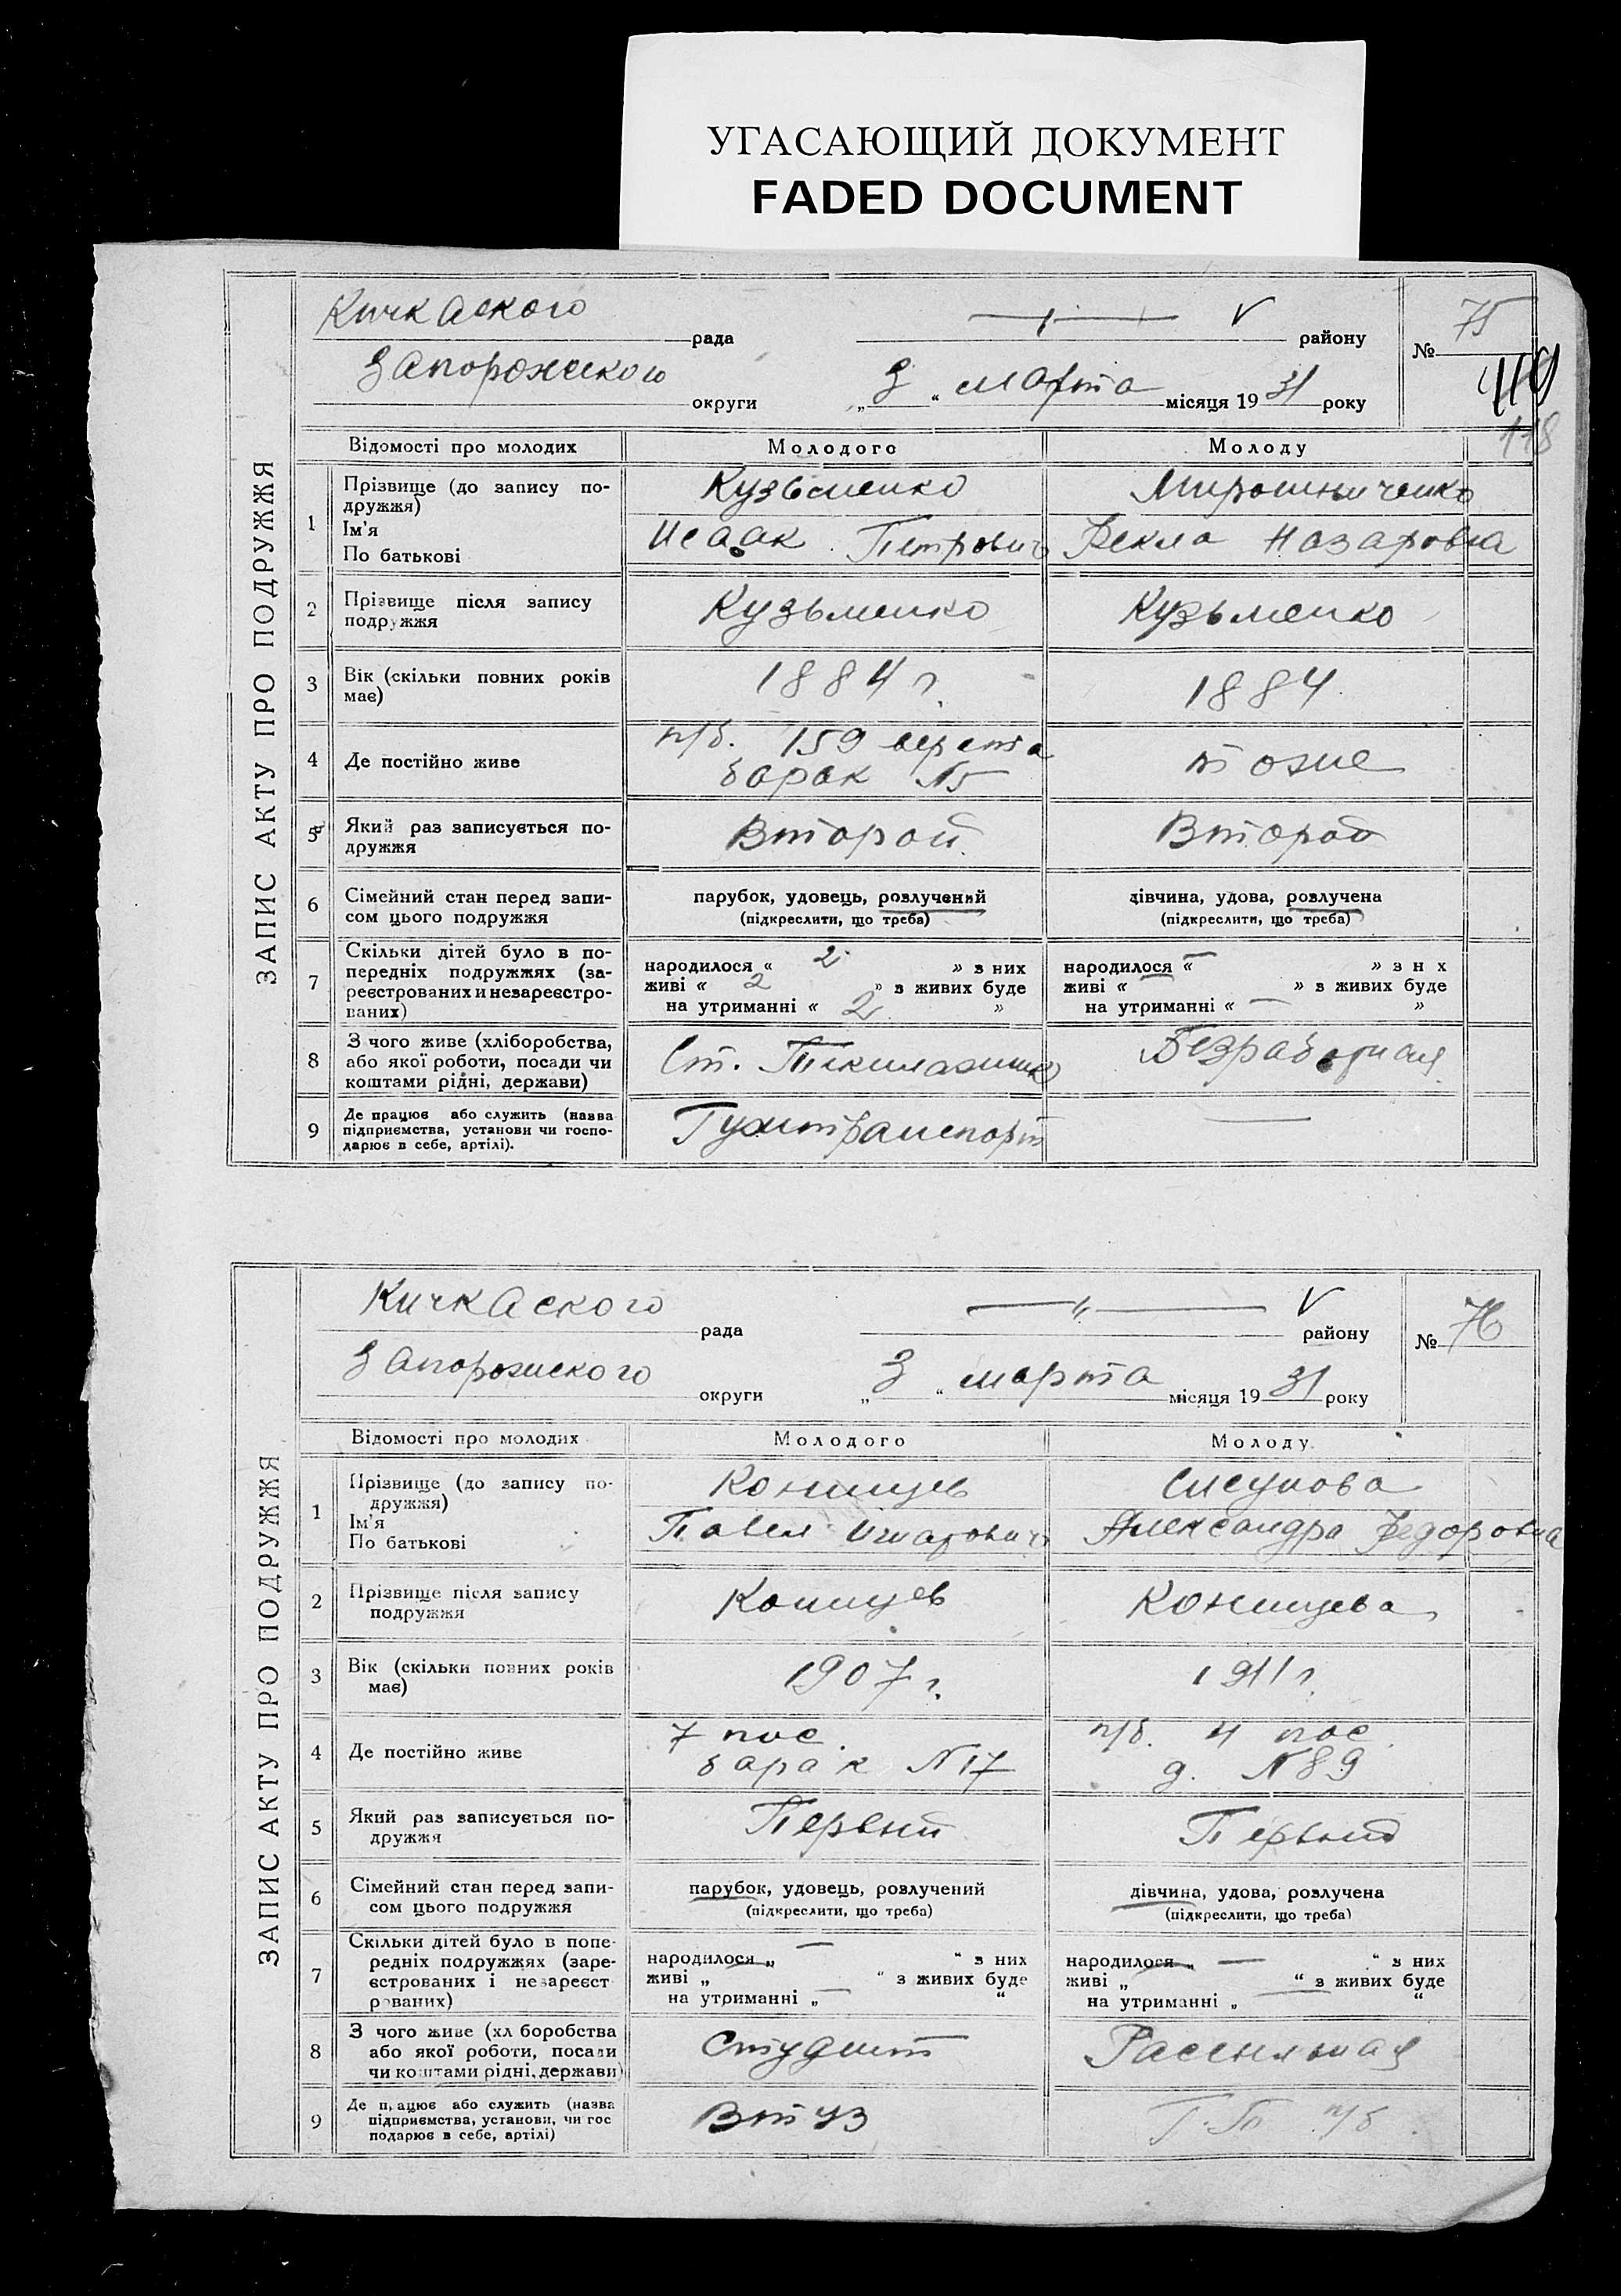 УГАСАЮЩИЙ ДОКУМЕНТ
FADED DOCUMENT
ЗАПИС АКТУ ПРО ПОДРУЖЖЯ
Кичкаского рада V району № 75
Запорожского округи „ 3 “ марта місяця 19 31 року
119
118
Відомості про молодих Молодого Молоду
1 Прізвище (до запису по-
дружжя)
Ім'я
По батькові
Кузьменко Мирошниченко
Исаак Петрович Фекла Назаровна
2 Прізвище після запису
подружжя
Кузьменко Кузьменко
3 Вік (скільки повних років
має)
1884 г. 1884
4 Де постійно живе
п/б. 159 верста
барак N5
тоже
5 Який раз записується по-
дружжя
Второй Второй
6 Сімейний стан перед запи-
сом цього подружжя
парубок, удовець, розлучений
(підкреслити, що треба)
дівчина, удова, розлучена
(підкреслити, що треба)
7 Скільки дітей було в по-
передніх подружжях (за-
реєстрованих и незареєстро-
ваних)
народилося « 2 » з них
живі « 2 » з живих буде
на утриманні « 2 »
народилося « — » з н х
живі « — » з живих буде
на утриманні « — »
8 З чого живе (хліборобства,
або якої роботи, посади чи
коштами рідні, держави)
Ст. Безработная
9 Де працює або служить (назва
підприємства, установи чи госпо-
дарює в себе, артілі).
—
ЗАПИС АКТУ ПРО ПОДРУЖЖЯ
Кичкаского рада V району № 76
Запорожского округи „ 3 “ марта місяця 19 31 року
Відомості про молодих Молодого Молоду
1 Прізвище (до запису по-
дружжя)
Ім'я
По батькові
Конищев
Павел Александра Федоровна
2 Прізвище після запису
подружжя
Конищев Конищева
3 Вік (скільки повних років
має)
1907 г. 1911 г.
4 Де постійно живе
7 пос.
барак N17
п/б. 4 пос.
д. N89
5 Який раз записується по-
дружжя
Первый Первый
6 Сімейний стан перед запи-
сом цього подружжя
парубок, удовець, розлучений
(підкреслити, що треба)
дівчина, удова, розлучена
(підкреслити, що треба)
7 Скільки дітей було в попе-
редніх подружжях (заре-
єстрованих і незареєст
рованих)
народилося „ — “ з них
живі „ “ з живих буде
на утриманні „ — “
народилося „ — “ з них
живі „ “ з живих буде
на утриманні „ “
8 З чого живе (хл боробства
або якої роботи, посади
чи коштами рідні, держави)
Студент Рассыльная
9 Де працює або служить (назва
підприємства, установи, чи гос
подарює в себе, артілі)
Втуз Г. П. п/б